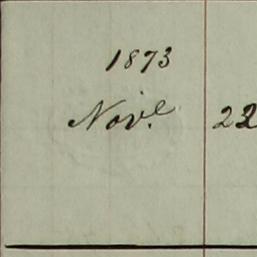 1873
Nov.e 22